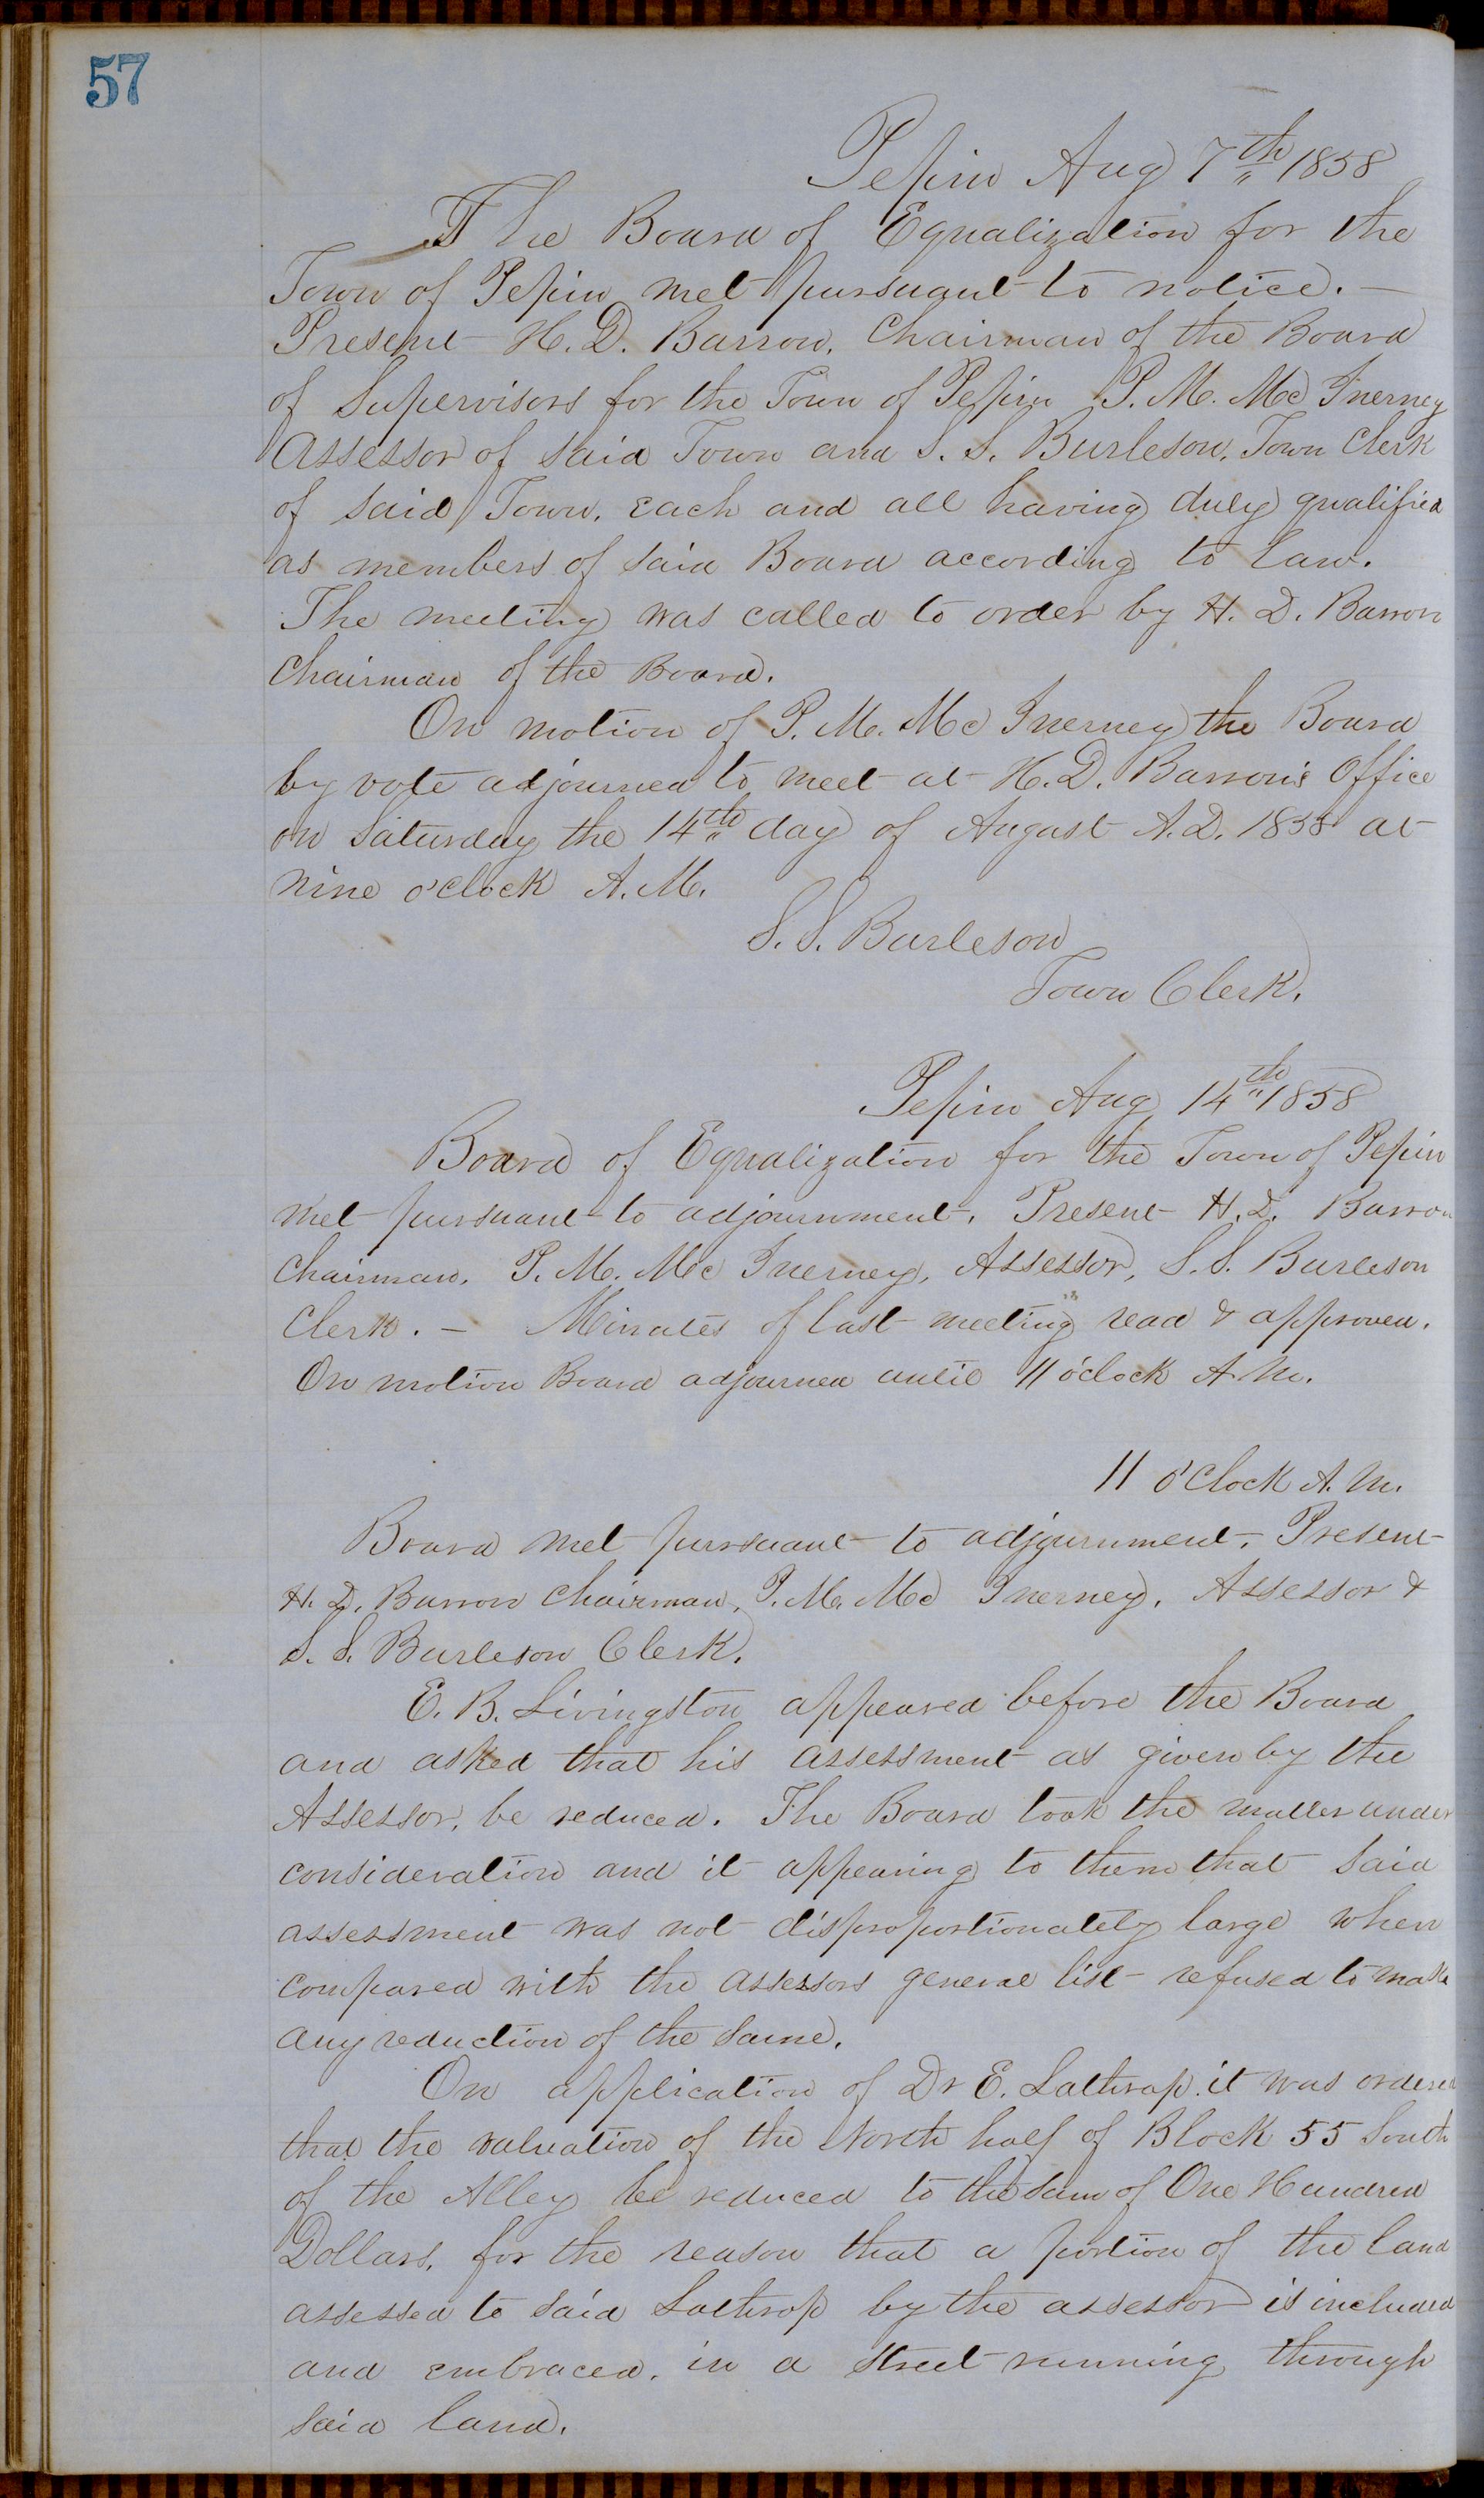 57
Pepin Aug 7th 1858
The Board of Equalization for the
Town of Pepin met pursuant to notice. —
Present H. D. Barron, Chairman of the Board
of Supervisors for the Town of Pepin P. M. Mc Inerney
Assessor of said Town and S. S. Burleson, Town Clerk
of said Town, each and all having duly qualified
as members of said Board according to law.
The meeting was called to order by H. D. Barron
Chairman of the Board.
On motion of P. M. Mc Inerney the Board
by vote adjourned to meet at H. D. Barron's Office
on Saturday the 14th day of August A. D. 1858 at
nine o'clock A. M.
S. S. Burleson
Town Clerk.
Pepin Aug 14th 1858
Board of Equalization for the Town of Pepin
met pursuant to adjournment. Present H. D. Barron
Chairman, P. M. Mc Inerney, Assessor, S. S. Burleson
Clerk. — Minutes of last meeting read & approved.
On motion Board adjourned until 11 o'clock A. M.
11 o'Clock A. M.
Board met pursuant to adjournment. Present
H. D. Barron Chairman, P. M. Mc Inerney, Assessor &
S. S. Burleson Clerk.
E. B. Livingston appeared before the Board
and asked that his assessment as given by the
Assessor, be reduced. The Board took the matter under
consideration and it appearing to them that said
assessment was not disproportionately large when
compared with the assessors general list refused to make
any reduction of the same.
On application of Dr E. Lathrop it was ordered
that the valuation of the North half of Block 55 South
of the Alley be reduced to the sum of One Hundred
Dollars, for the reason that a portion of the land
assessed to said Lathrop by the assessor is included
and embraced, in a street running through
said land.